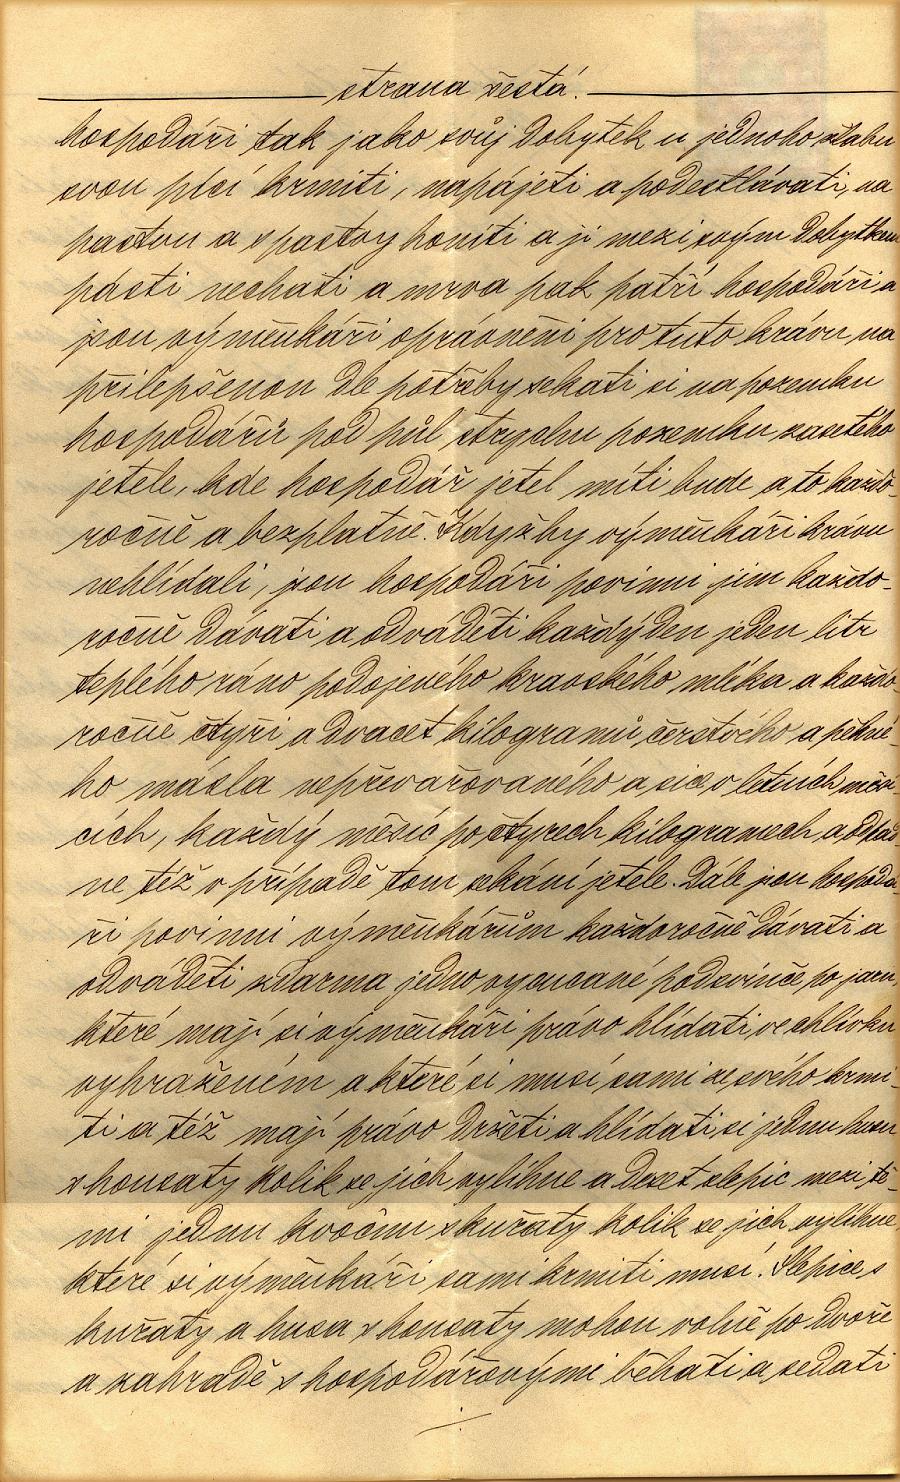 strana šestá.
hospodáři tak jako svůj dobytek u jednoho žlabu
svou plcí krmiti, napájeti a podestlávati, na
pastvu a s pastvy honiti a ji mezi svým dobytkem
pásti nechati a mrva pak patří hospodáři a
jsou výměnkáři oprávněni pro tuto krávu na
přilepšenou dle potřeby sekati si na pozemku
hospodářů pod půl strychu pozemku zasetého
jetele, kde hospodář jetel míti bude a to každo-
ročně a bezplatně. Kdyžby výměnkáři krávu
nehlídali, jsou hospodáři povinni jim každo-
ročně dávati a odváděti každý den jeden litr
teplého ráno podojeného kravského mléka a každo-
ročně čtyři a dvacet kilogramů čerstvého a pěkné-
ho másla nepřevařovaného a sice v letních měsí-
cích, každý měsíc po čtyrech kilogramech a odpad-
ne též v případě tom sekání jetele. Dále jsou hospodá-
ři povinni výměnkářům každoročně dávati a
odváděti zdarma jedno vycucané podsvinče po jaru,
které mají si výměnkáři právo hlídati ve chlívku
vyhraženém a které si musí sami ze svého krmi-
ti a též mají právo držeti a hlídati si jednu husu
s housaty kolik se jich vylíhne a deset slepic mezi tě-
mi jednu kvočnu s kuřaty kolik se jich vylíhne,
které si výměnkáři sami krmiti musí. Slepice s
kuřaty a husa s housaty mohou volně po dvoře
a zahradě s hospodářovými běhati a sedati